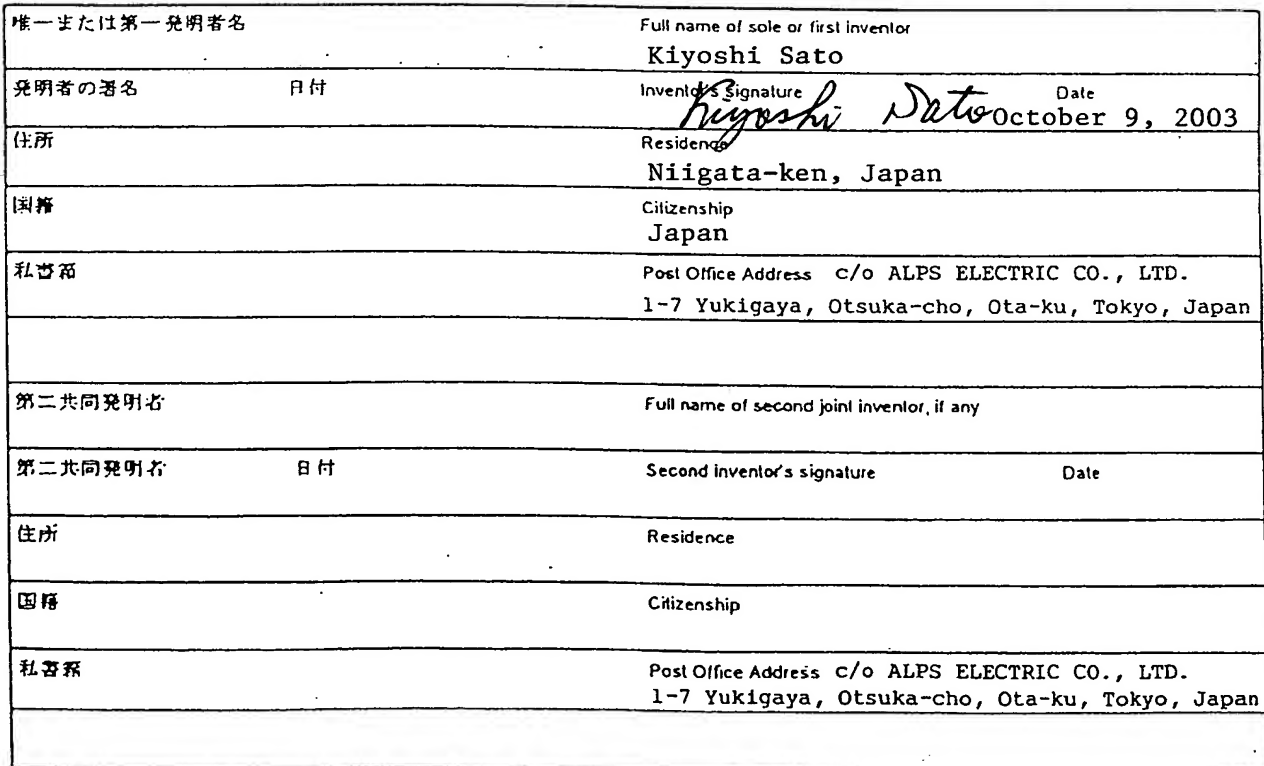 唯一または第一発明者名 Full name of sole or first inventor
Kiyoshi Sato
発明者の署名 日付 Inventor's signature Date
Kiyoshi Sato October 9, 2003
住所 Residence
Niigata-ken, Japan
国籍 Citizenship
Japan
私書箱 Post Office Address c/o ALPS ELECTRIC CO., LTD.
1-7 Yukigaya, Otsuka-cho, Ota-ku, Tokyo, Japan
第二共同発明者 Full name of second joint inventor, if any
第二共同発明者 日付 Second inventor's signature Date
住所 Residence
国籍 Citizenship
私書箱 Post Office Address c/o ALPS ELECTRIC CO., LTD.
1-7 Yukigaya, Otsuka-cho, Ota-ku, Tokyo, Japan